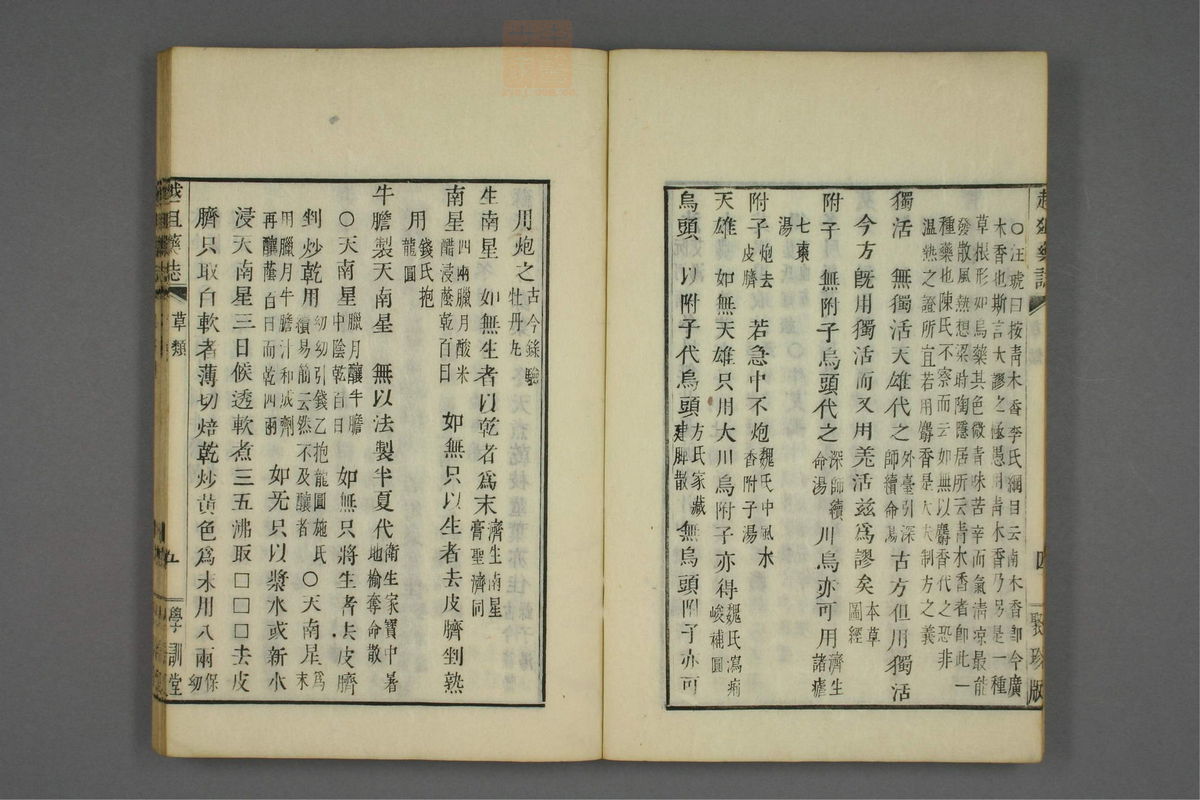 ○汪琥曰按青木香李氏綱目云南木香卽今廣
木香也斯言大謬之極愚用青木香乃另是一種
草根形如烏藥其色微青味苦辛而氣清凉最能
發散風熱想梁時陶隱居所云青木香者卽此一
種藥也陳氏不察而云如無以麝香代之恐非
溫熱之證所宜若用麝香是大失制方之義
獨活　無獨活天雄代之外臺引深師續命湯古方但用獨活
今方旣用獨活而又用羌活玆爲謬矣本草圖經
附子　無附子烏頭代之深師續命湯川烏亦可用濟生諸瘧
七棗湯
附子炮去皮臍　若急中不炮魏氏中風水香附子湯
天雄　如無天雄只用大川烏附子亦得魏氏瀉痢峻補圓
烏頭　以附子代烏頭方氏家藏建脾散無烏頭附子亦可
四
聚珍版
用炮之古今錄驗牡丹丸
生南星　如無生者以乾者爲末濟生南星膏聖濟同
南星四兩臘月酸米醋浸蔭乾百日　如無只以生者去皮臍剉熟
用錢氏抱龍圓
牛膽製天南星　無以法製半夏代衛生家寶中暑地榆奪命散
○天南星臘月釀牛膽中陰乾百日　如無只將生者去皮臍
剉炒乾用幼幼引錢乙抱龍圓施氏續易簡云然不及釀者○天南星爲末
用臘月牛膽汁和成劑再釀蔭百日而乾四兩　如无只以漿水或新水
浸天南星三日候透軟煮三五沸取□□□去皮
臍只取白軟者薄切焙乾炒黄色爲末用八兩保幼
藥誌
草類
五
學訓堂